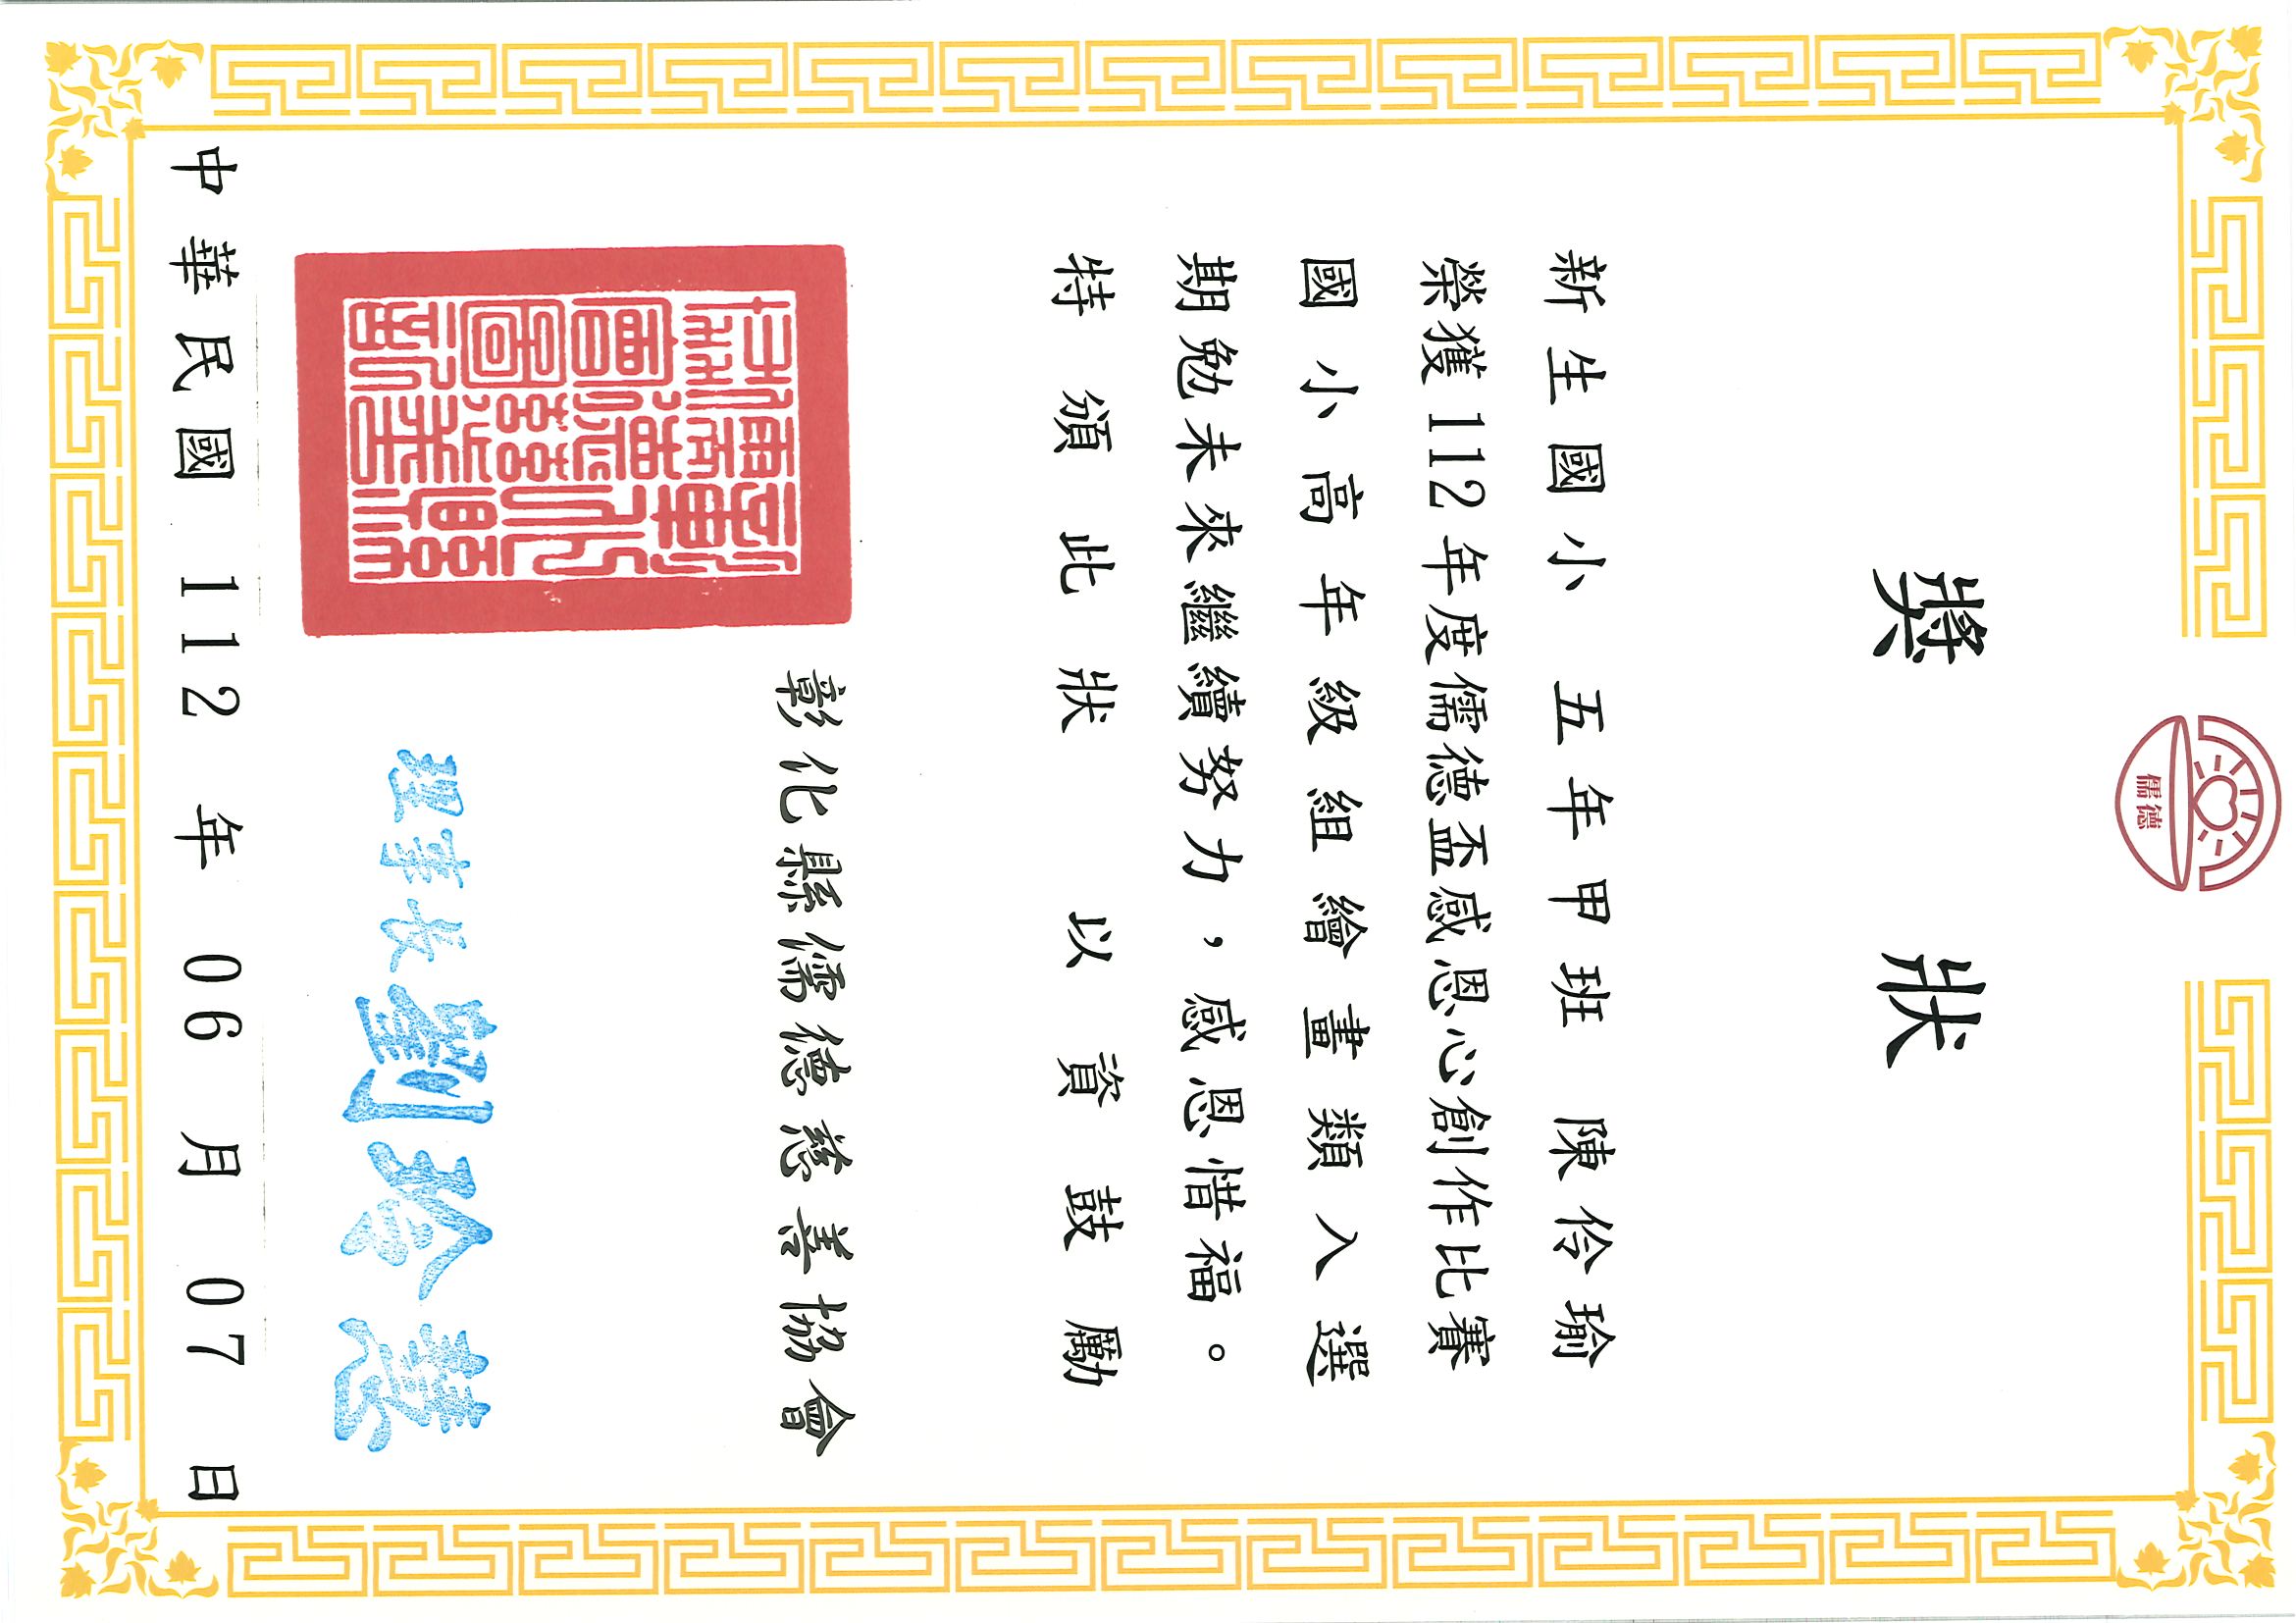 儒德
獎狀
新生國小 五年甲班 陳伶瑜
榮獲112年度儒德盃感恩心創作比賽
國小高年級組繪畫類入選
期勉未來繼續努力，感恩惜福。
特頒此狀以資鼓勵
彰化縣儒德慈善協會
理事長劉玲慧
中華民國 112 年 06 月 07 日